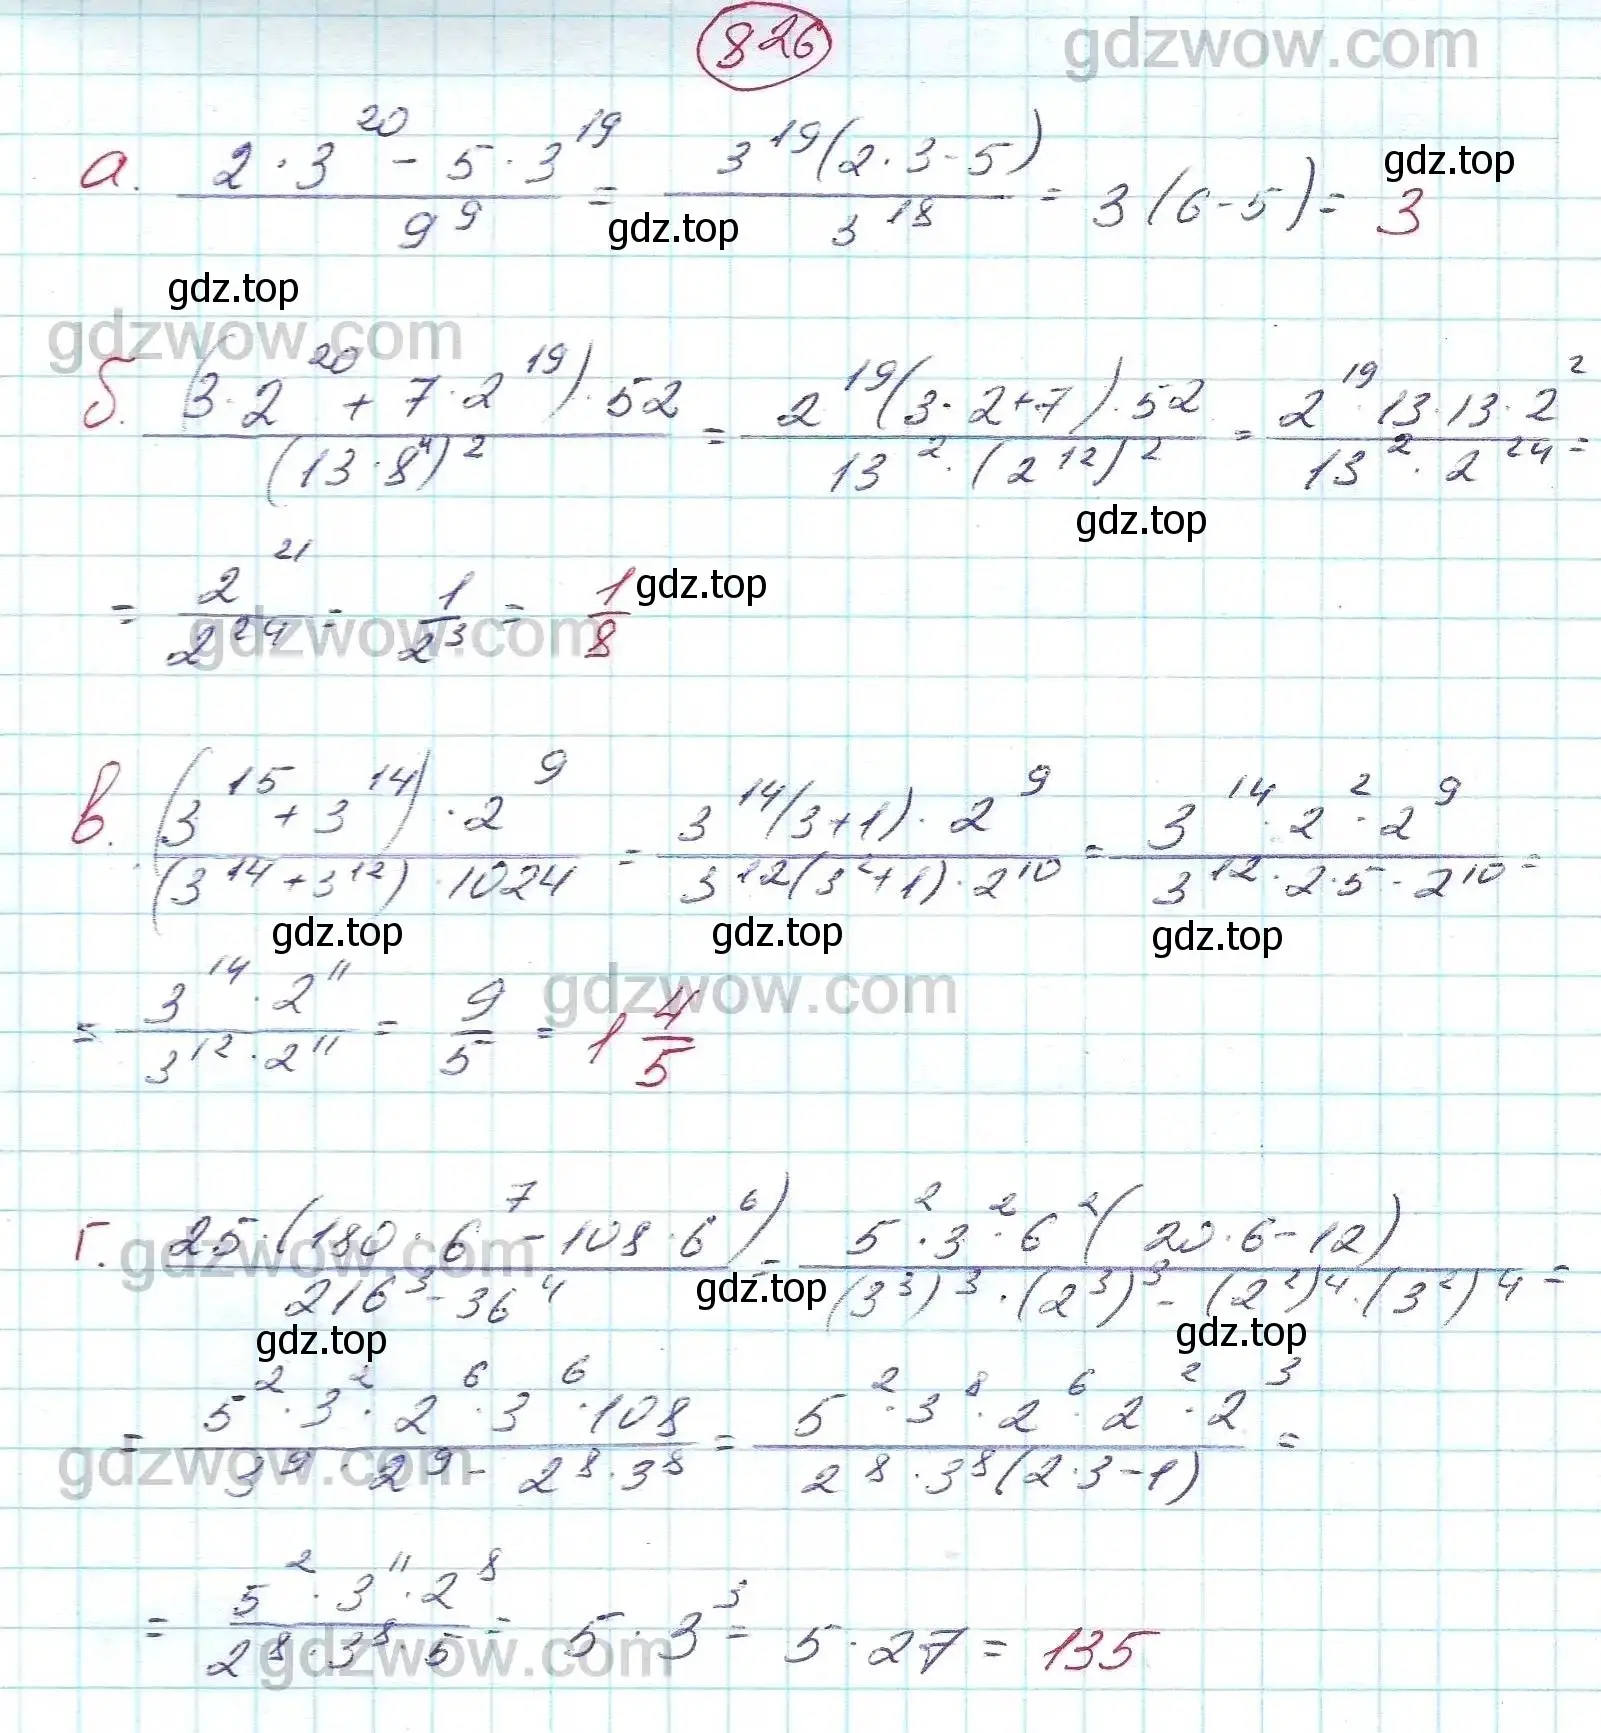 826
gdzwow.com
а. (2 · 3^20 - 5 · 3^19)/(9^9) = (3^19(2 · 3 - 5))/(3^18) = 3(6 - 5) = 3
gdz.top
gdz.top
gdz.top
gdzwow.com
б. ((3 · 2^20 + 7 · 2^19) · 52)/((13 · 8^4)^2) = (2^19(3 · 2 + 7) · 52)/(13^2 · (2^12)^2) = (2^19 · 13 · 13 · 2^2)/(13^2 · 2^24) =
gdz.top
= 2^21/2^24 = 1/2^3 = 1/8
gdz.top
gdzwow.com
в. ((3^15 + 3^14) · 2^9)/((3^14 + 3^12) · 1024) = (3^14(3 + 1) · 2^9)/(3^12(3^2 + 1) · 2^10) = (3^14 · 2^2 · 2^9)/(3^12 · 2 · 5 · 2^10) =
gdz.top gdz.top gdz.top
= (3^14 · 2^11)/(3^12 · 2^11) = 9/5 = 1 4/5
gdzwow.com
г. (25 · (180 · 6^7 - 108 · 6^6))/(216^3 - 36^4) = (5^2 · 3^2 · 6^2(20 · 6 - 12))/((3^3)^3 · (2^3)^3 - (2^2)^4 · (3^2)^4) =
gdzwow.com
gdz.top
gdz.top gdz.top
= (5^2 · 3^2 · 2^6 · 3^6 · 108)/(3^9 · 2^9 - 2^8 · 3^8) = (5^2 · 3^8 · 2^6 · 2^2 · 2^3)/(2^8 · 3^8(2 · 3 - 1)) =
gdzwow.com
= (5^2 · 3^11 · 2^8)/(2^8 · 3^8 · 5) = 5 · 3^3 = 5 · 27 = 135
gdzwow.com